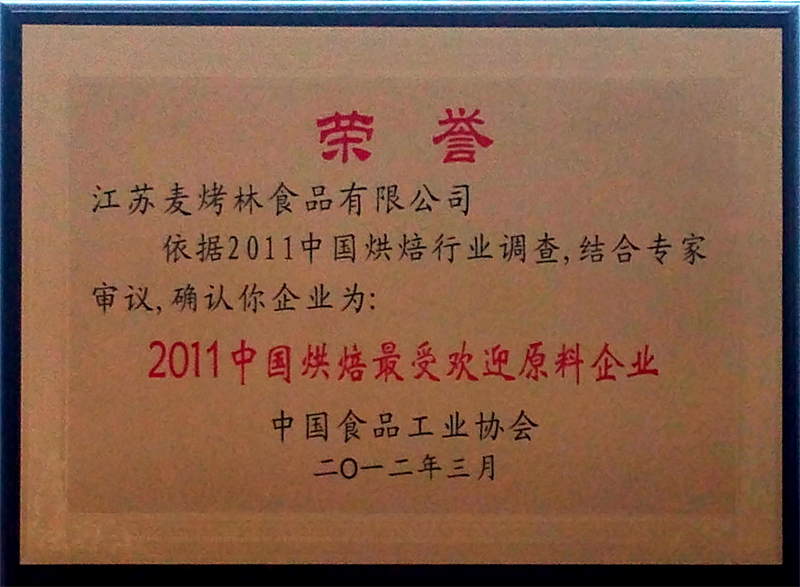 荣 誉
江苏麦烤林食品有限公司
依据2011中国烘焙行业调查,结合专家
审议,确认你企业为:
2011中国烘焙最受欢迎原料企业
中国食品工业协会
二〇一二年三月